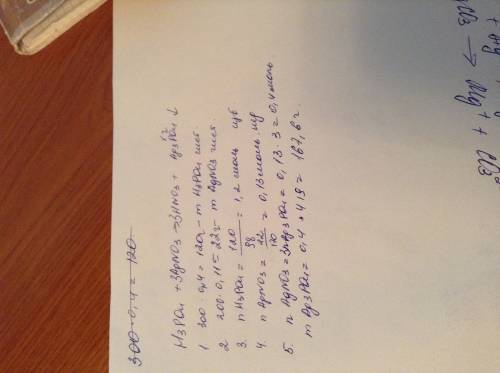 300·0,4 = 120
H3PO4 + 3AgNO3 → 3HNO3 + Ag3PO4 ↓
1 300·0,4 = 120г – m H3PO4
2 200·0,11 = 22г – m AgNO3
3. n H3PO4 = 120/98 = 1,2 моль
4. n AgNO3 = 22/170 = 0,13 моль
5. n AgNO3 = 3n Ag3PO4 = 0,13·3 = 0,4 моль.
m Ag3PO4 = 0,4·419 = 167,6 г.